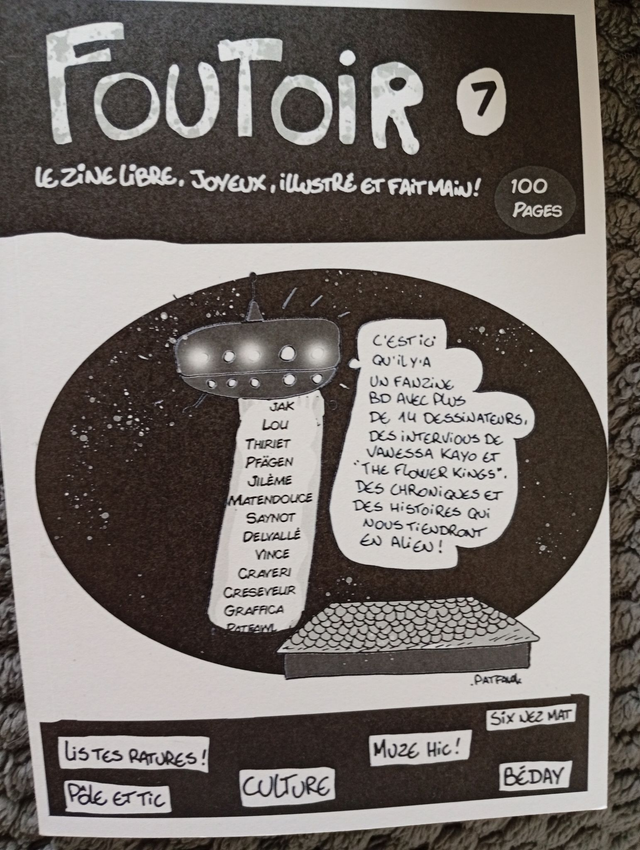 FOUTOIR 7
LE ZINE LIBRE, JOYEUX, ILLUSTRÉ ET FAIT MAIN!
100
PAGES
JAK
LOU
THIRIET
PFÄGEN
JILÈME
MATENDOUCE
SAYNOT
DELVALLÉ
VINCE
CRAVERI
CRESEVEUR
GRAFFICA
C'EST ICI
QU'IL Y'A
UN FANZINE
BD AVEC PLUS
DE 14 DESSINATEURS,
DES INTERVIOUS DE
VANESSA KAYO ET
"THE FLOWER KINGS".
DES CHRONIQUES ET
DES HISTOIRES QUI
NOUS TIENDRONT
EN ALIEN!
SIX NEZ MAT
LISTES RATURES!
MUZE HIC!
PÔLE ET TIC
CULTURE
BÉDAY